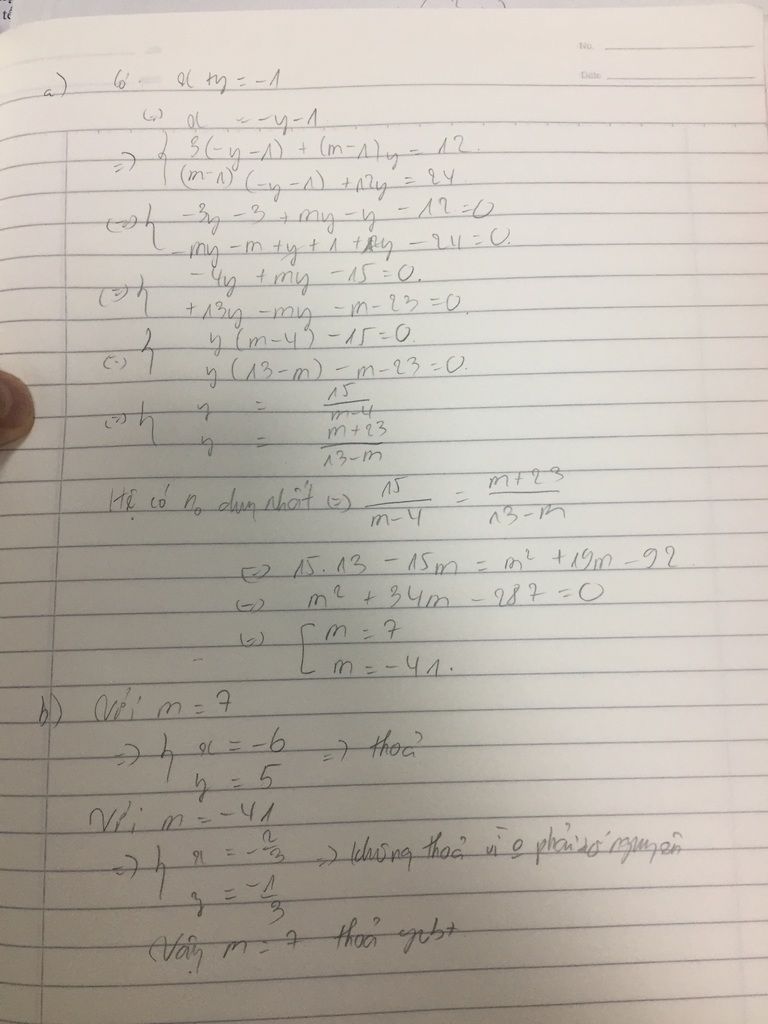 No.
Date
a) Có x + y = -1
(=) x = -y - 1
=> { 3(-y-1) + (m-1)y = 12.
(m-1) (-y-1) + 12y = 24
(=) { -3y - 3 + my - y - 12 = 0
-my - m + y + 1 + 12y - 24 = 0.
(=) { -4y + my - 15 = 0.
+13y - my - m - 23 = 0
(=) { y (m-4) - 15 = 0.
y (13-m) - m - 23 = 0.
(=) { y = 15/(m-4)
y = (m+23)/(13-m)
Hệ có no duy nhất (=) 15/(m-4) = (m+23)/(13-m)
(=) 15.13 - 15m = m² + 19m - 92
(=) m² + 34m - 287 = 0
(=) [ m = 7
m = -41.
b) Với m = 7
=> { x = -6 => thoả
y = 5
Với m = -41
=> { x = -2/3 => không thoả vì o phải số nguyên
y = -1/3
Vậy m = 7 thoả ycbt